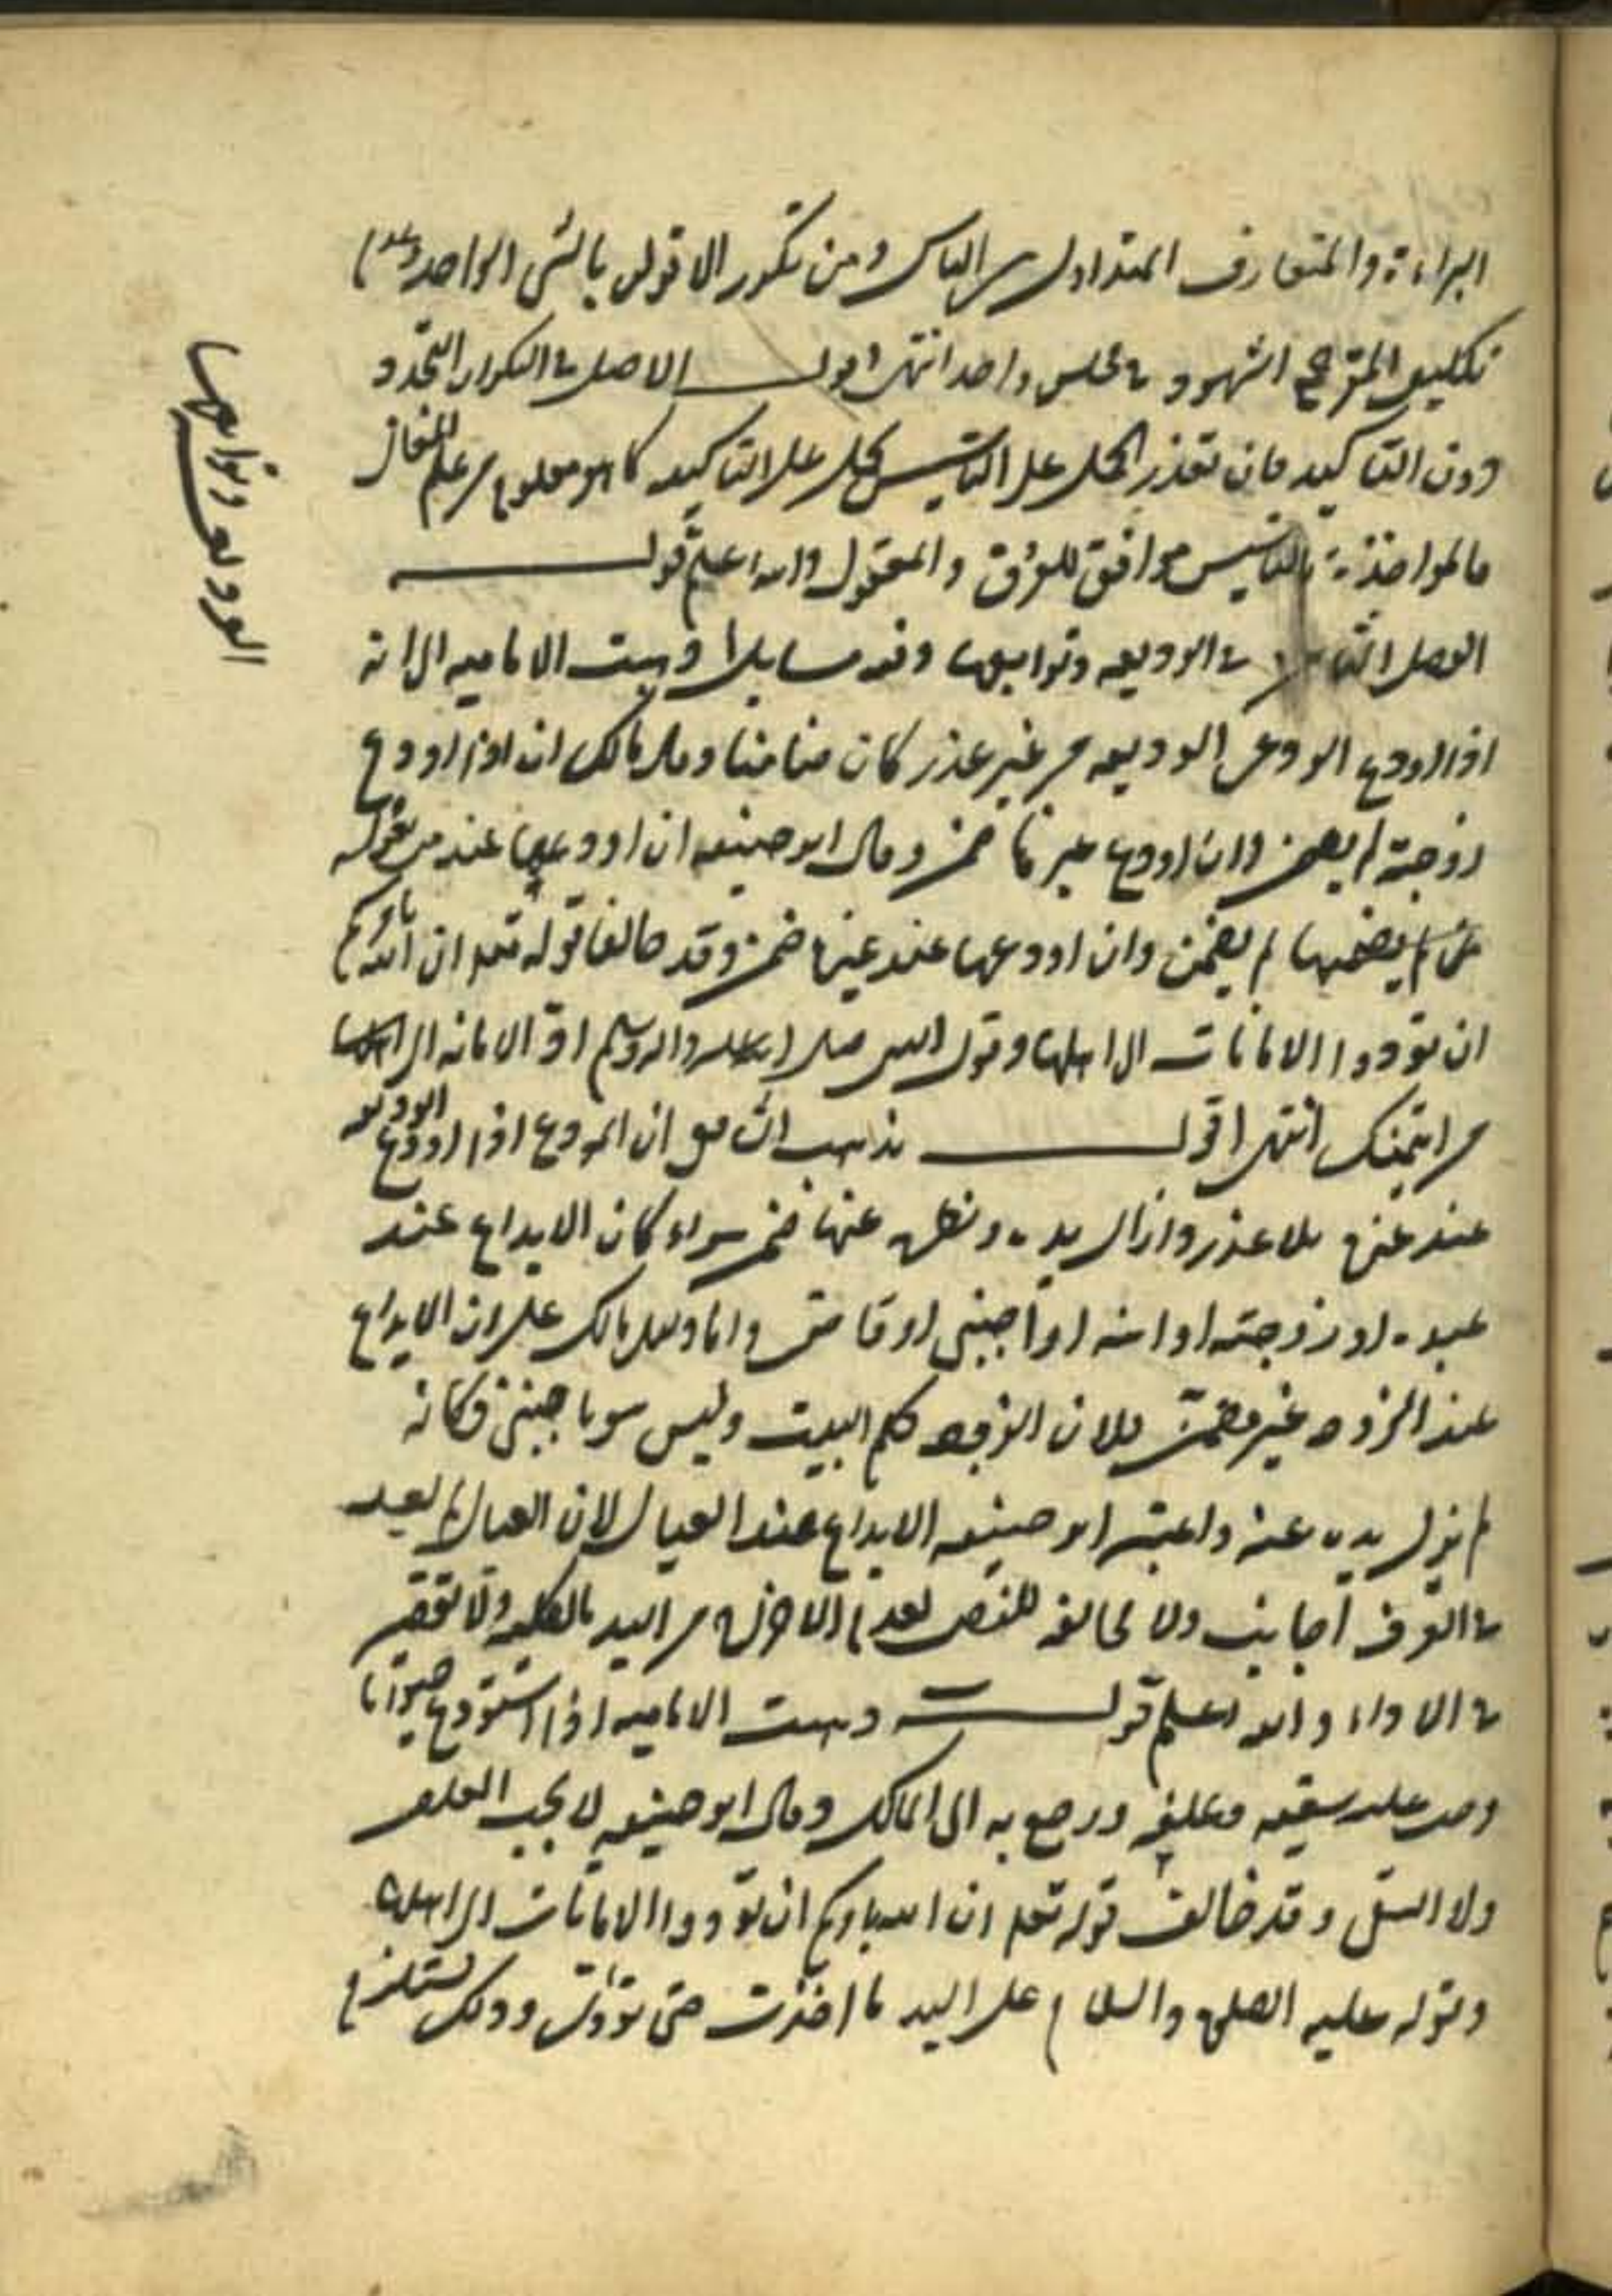 البراءة والمتعارف المتداول بين الناس ومن تكرر الاقرار بالشي الواحد وعدم
تكليف المقر جمع الشهود في مجلس واحد انتهى اقول الاصل في التكرار التجدد
دون التاكيد فان تعذر الحمل على التاسيس يحمل على التاكيد كما هو معلوم من علم
فالمواخذة بالتاسيس موافق للعرف والمعقول والله اعلم قوله
الفصل الثامن في الوديعه وتوابعها وفيه مسايل ا ذهبت الاماميه الى انه
اذا اودع المودع الوديعه من غير عذر كان ضامنا وقال مالك ان اذا اودع
زوجته لم يضمن وان اودع غيرها ضمن وقال ابو حنيفه ان اودعها عند من يعوله
لم يضمن وان اودعها عند غيره ضمن وقد خالفا قوله تعلى ان الله يامركم
ان تودوا الامانات الى اهلها وقول النبي صلى الله عليه واله وسلم اد الامانه الى
من ائتمنك انتهى اقول مذهب الشافعي ان المودع اذا اودع الوديعه
عند غيره بلا عذر وازال يده ونظره عنها ضمن سواء كان الايداع عند
عبده او زوجته او ابنه او اجنبي او قاضي واما دليل مالك على ان الايداع
عند الزوجه غير مضمن فلان الزوجه كلم البيت وليس هو باجنبي فكانه
لم يزل يده عنه واعتبر ابو حنيفه الايداع عند العيال لان العيال لا يعد
في العرف اجانب ولا مخالفه للنص لعدم الاخراج من اليد بالكليه ولا تقصير
في الاداء والله اعلم قوله ب ذهبت الاماميه اذا استودع حيوانا
وجب عليه سقيه وعلفه ورجع به الى المالك وقال ابو حنيفه لا يجب العلف
ولا السقي وقد خالف قوله تعلى ان الله يامركم ان تودوا الامانات الى اهلها
وقوله عليه الصلوة والسلام على اليد ما اخذت حتى تودي وذلك يستلزم
الوديعه وتوابعها